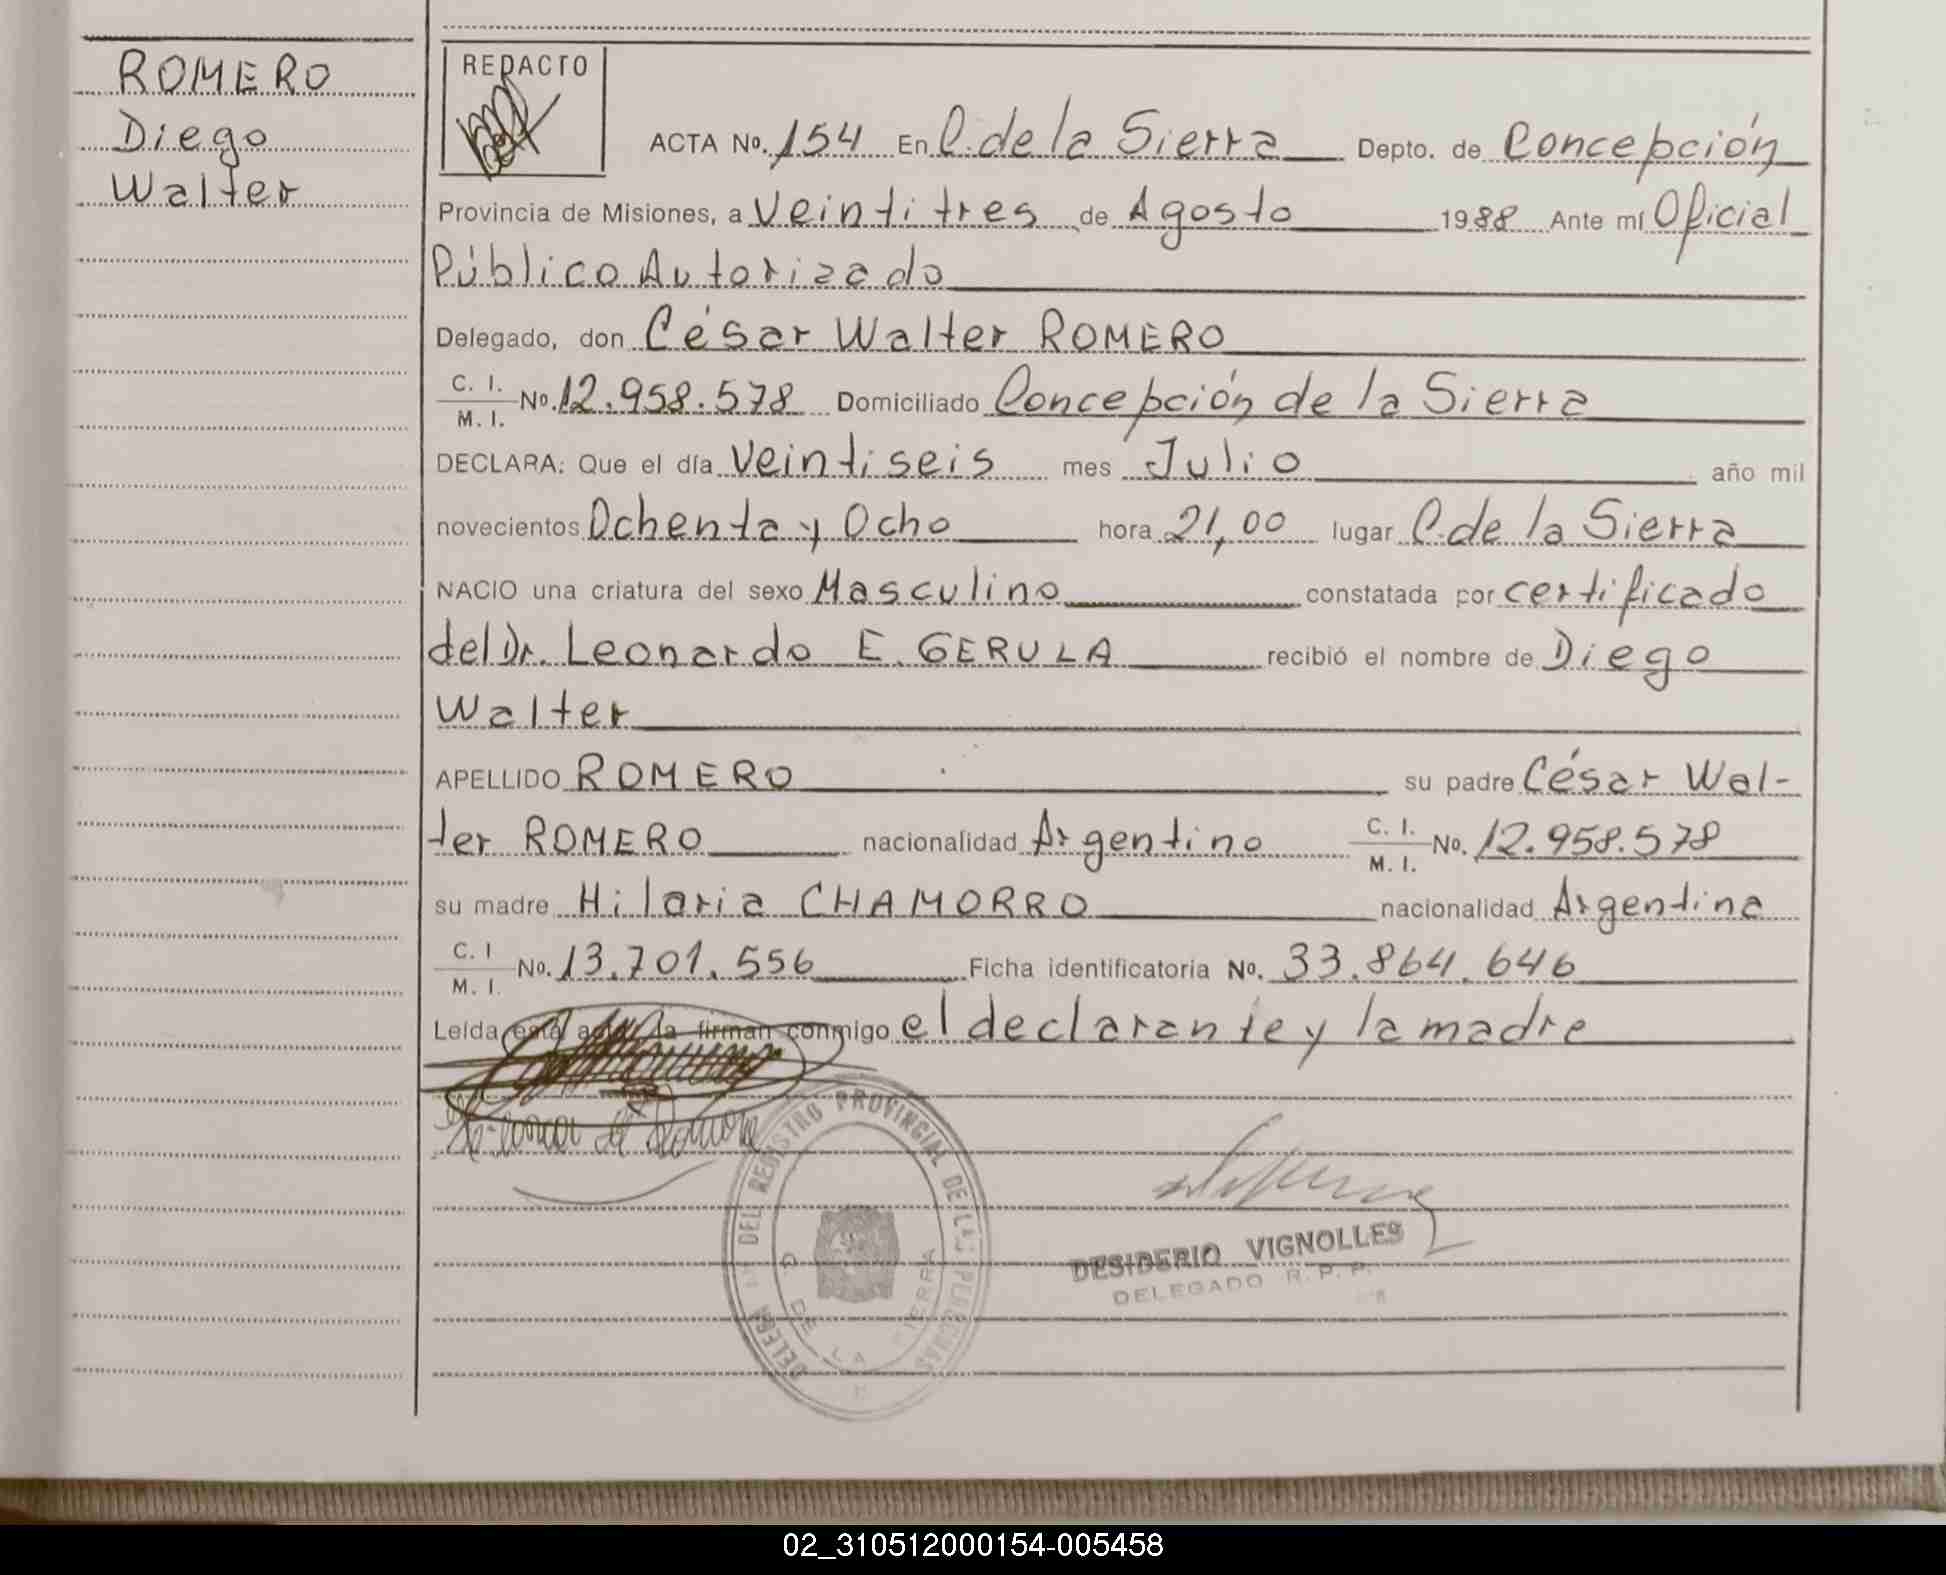 ROMERO
Diego
Walter
REDACTO
ACTA No. 154 En C. de la Sierra Depto. de Concepción
Provincia de Misiones, a Veintitres de Agosto 1988 Ante mí Oficial
Público Autorizado
Delegado, don César Walter ROMERO
C. I.
M. I. No. 12.958.578 Domiciliado Concepción de la Sierra
DECLARA: Que el día Veintiseis mes Julio año mil
novecientos Ochenta y Ocho hora 21,00 lugar C. de la Sierra
NACIO una criatura del sexo Masculino constatada por certificado
del Dr. Leonardo E. GERULA recibió el nombre de Diego
Walter
APELLIDO ROMERO su padre César Wal-
ter ROMERO nacionalidad Argentino C. I. M. I. No. 12.958.578
su madre Hilaria CHAMORRO nacionalidad Argentina
C. I
M. I. No. 13.701.556 Ficha identificatoria No. 33.864.646
Leída esta acta la firman conmigo el declarante y la madre
DEL REGISTRO PROVINCIAL DE LAS PERSONAS
C. DE LA SIERRA
DESIDERIO VIGNOLLES
DELEGADO R. P. P.
02_310512000154-005458